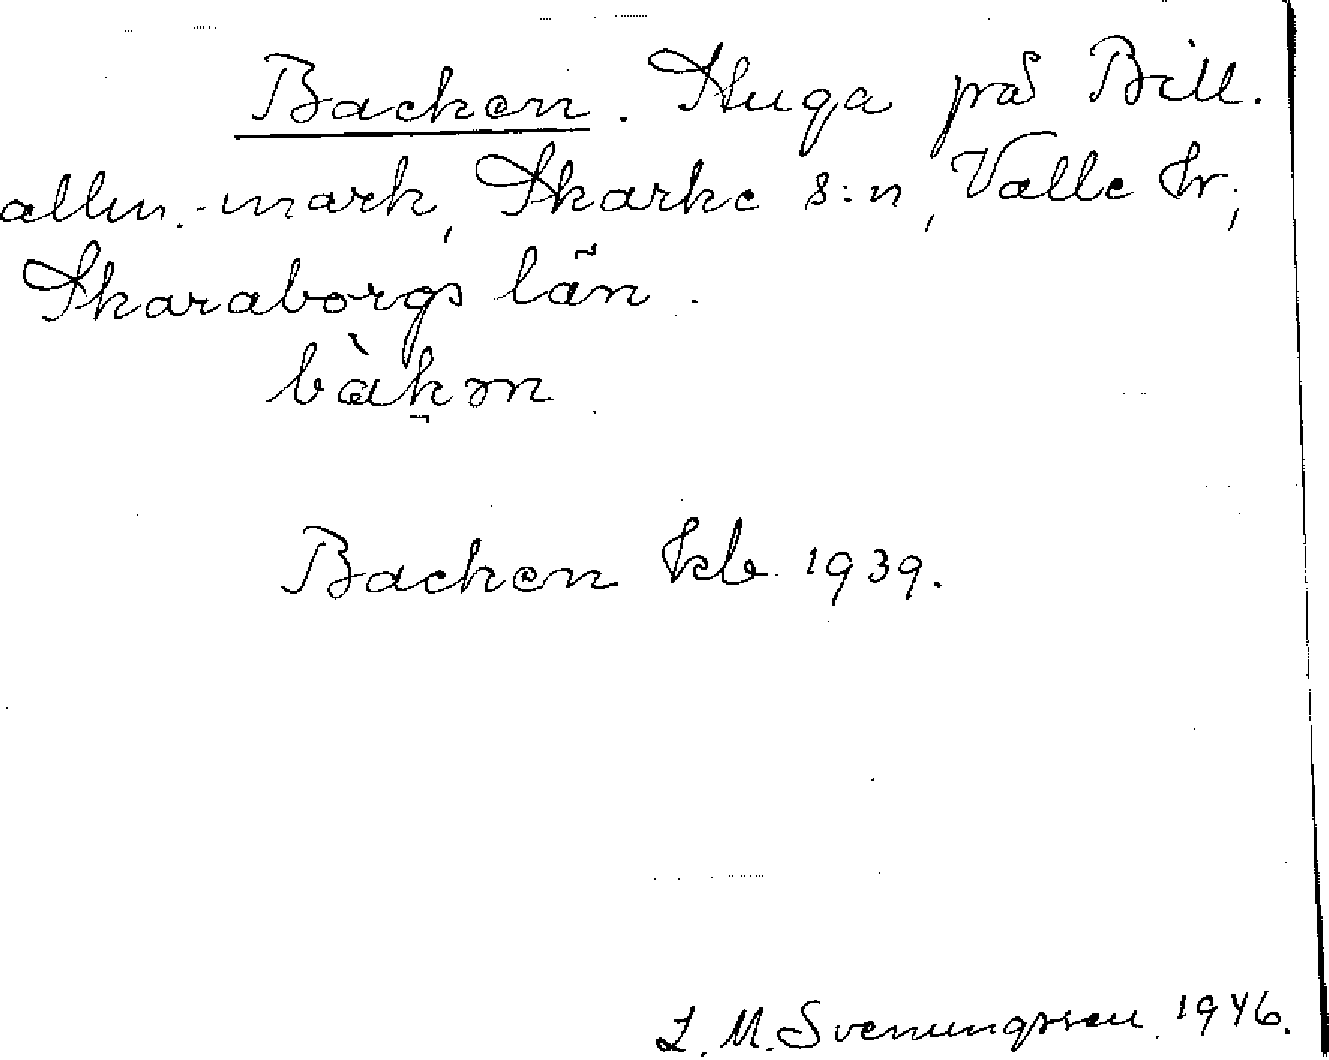 Backen. Stuga på Bill.
allm.-mark, Skarke s:n, Valle hr;
Skaraborgs län.
bàkən
Backen kb. 1939.
L. M. Svenungsson 1946.